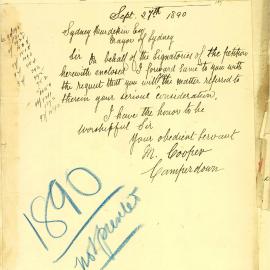 Sept. 27th 1890
Sydney Burdekin Esq
Mayor of Sydney
Sir On behalf of the Signatories of the petition
herewith enclosed I forward same to you with
the request that you will give the matter referred to
therein your serious consideration.
I have the honor to be
Worshipful Sir
Your obedient Servant
M. Cooper
Camperdown
1890
not printed